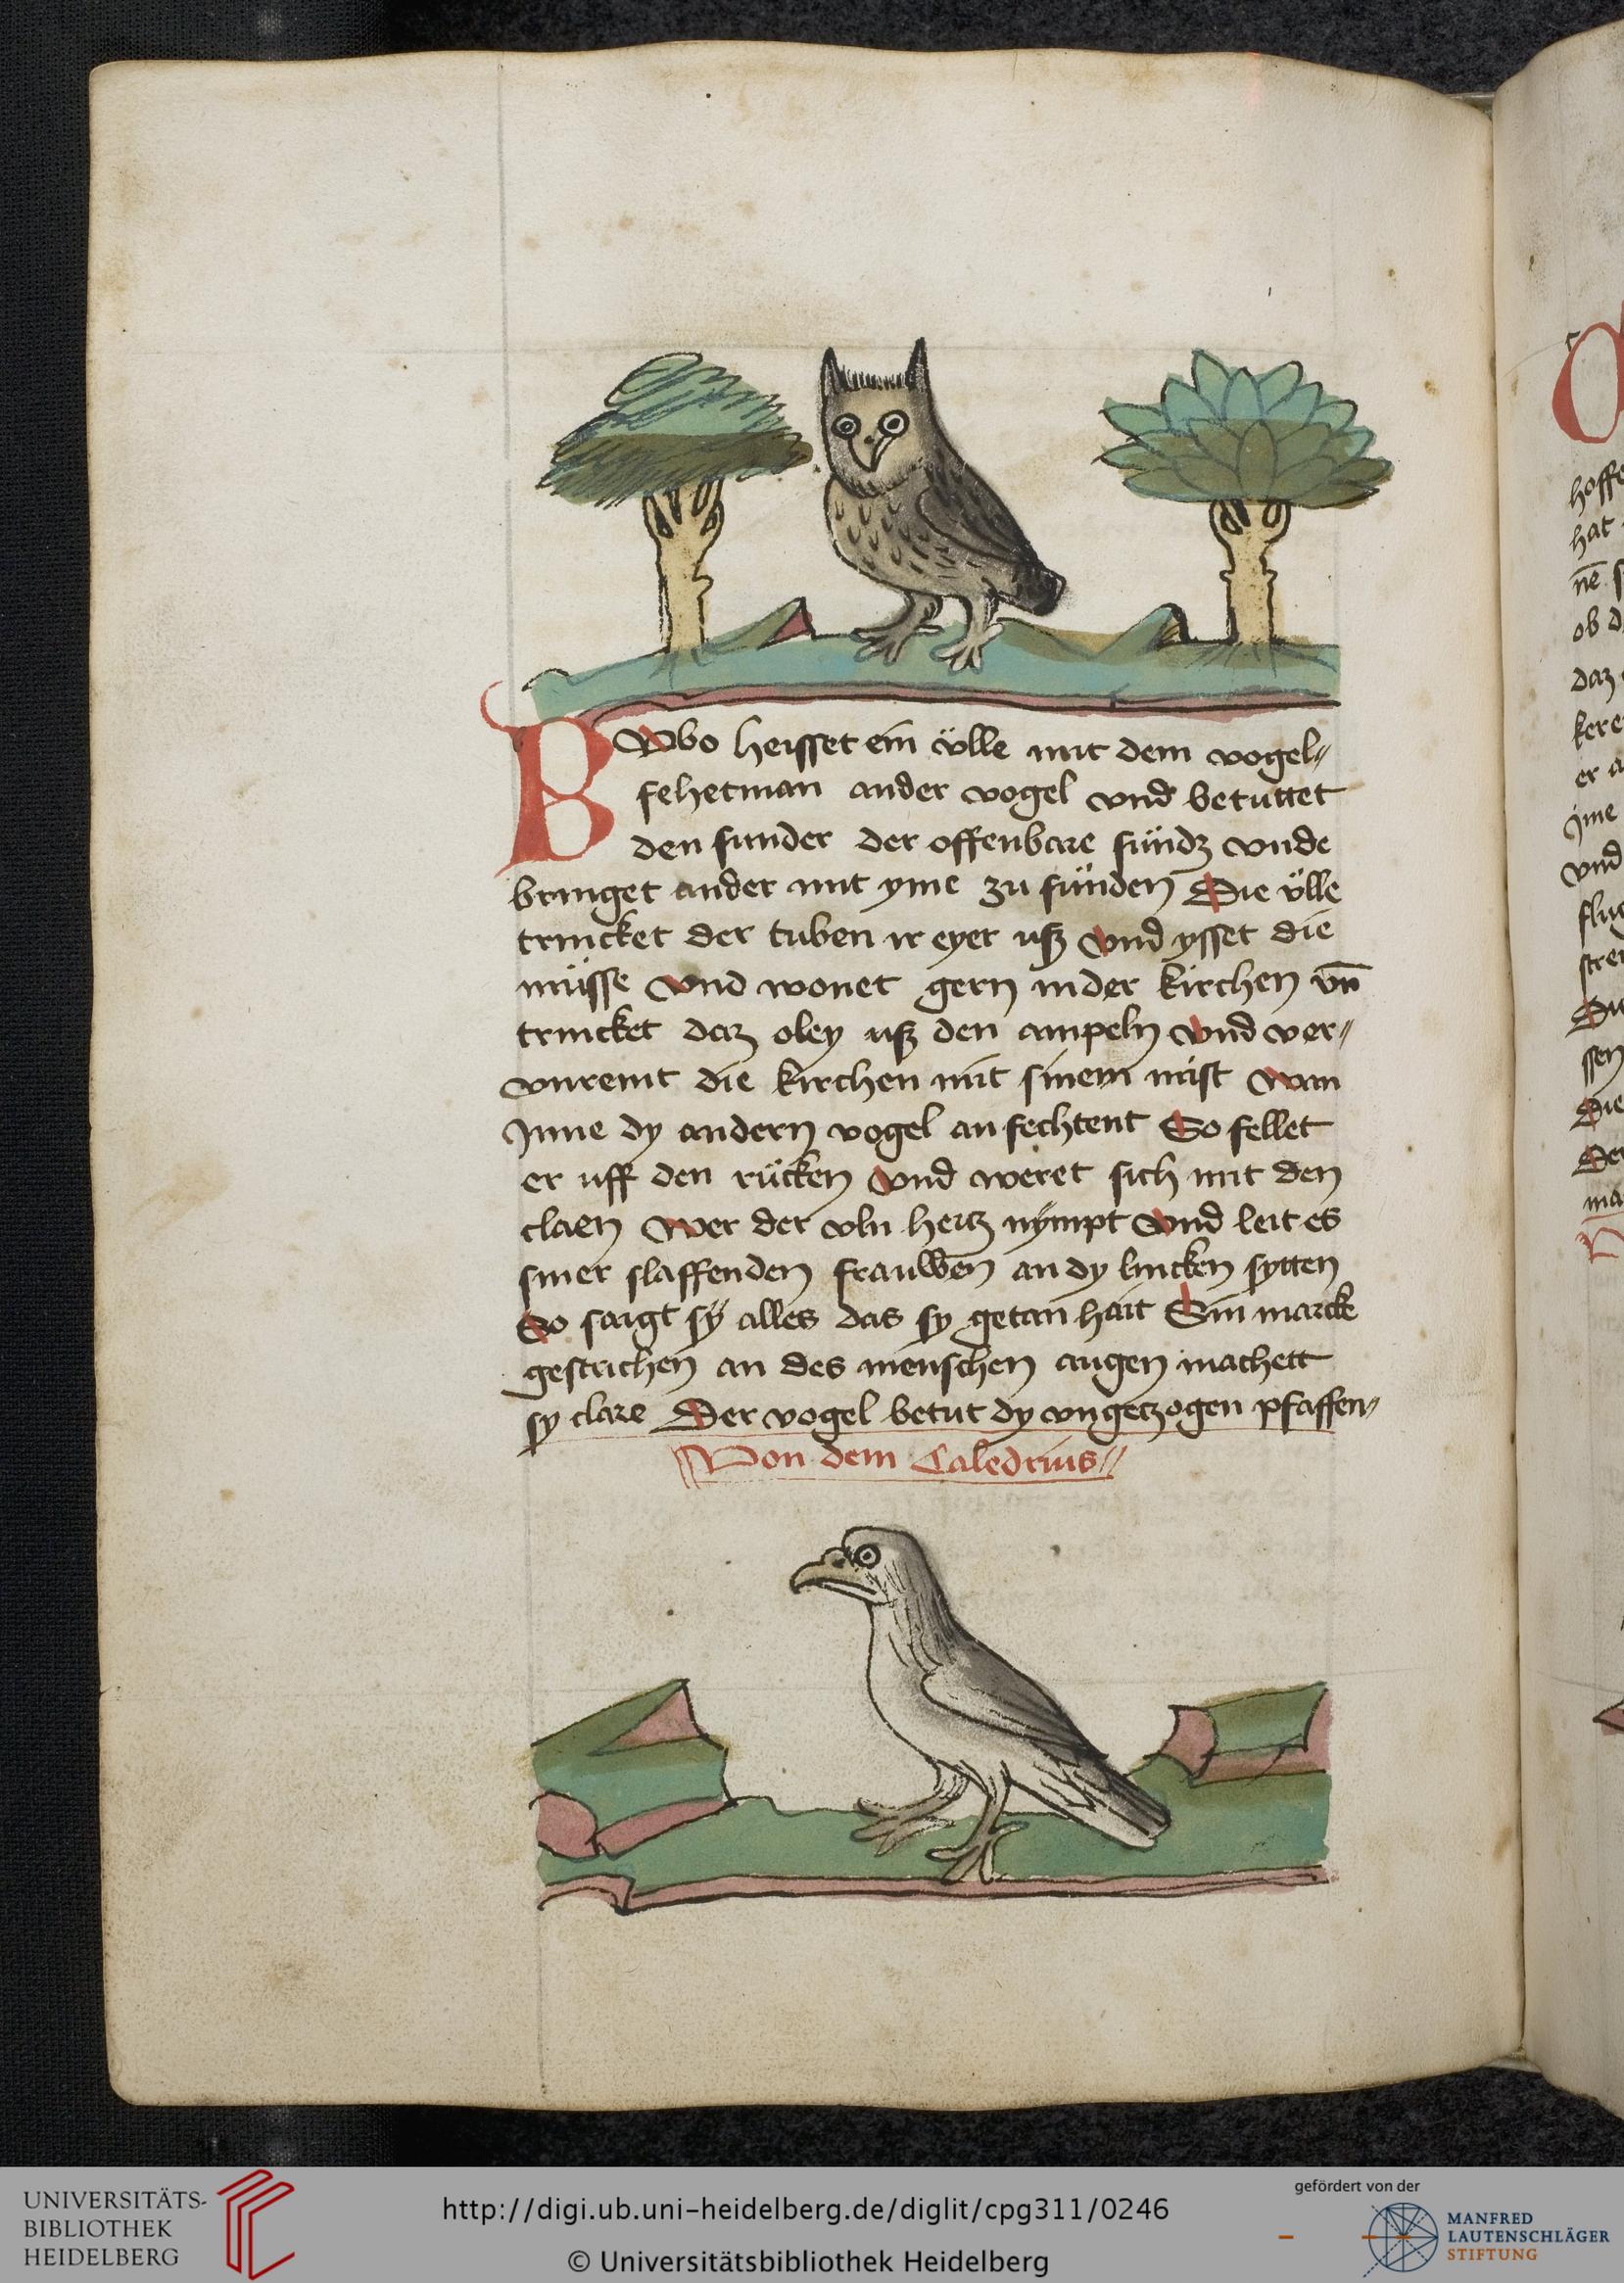 Bwbo heisset ein ülle mit dem vogel
fehetman ander vogel vnd betuttet
den sunder der offenbare sündz vnde
bringet ander mit yme zu sünden Die ülle
trincket der tuben ir eyer usz vnd ysset die
müsse vnd wonet gern inder kirchen vn̄
trincket daz oley usz den ampeln vnd ver⸗
vnreint die kirchen mit sinem mist wan
Inne dy andern vogel an fechtent So fellet
er uff den rücken vnd weret sich mit den
claen wer der vln hertz nympt vnd leit es
siner slaffenden frauwen an dy lincken sytten
So saigt sÿ alles das sy getan hait Sin marck
gestrichen an des menschen augen machett
sy clare Der vogel betut dy vngetzogen pfaffen
Von dem Caledrius
hoffe
hat
ob d
daz
kere
er a
yme
vnd
Die
ssen
Die
Der
ma
UNIVERSITÄTS-
BIBLIOTHEK
HEIDELBERG
http://digi.ub.uni-heidelberg.de/diglit/cpg311/0246
© Universitätsbibliothek Heidelberg
gefördert von der
MANFRED
LAUTENSCHLÄGER
STIFTUNG